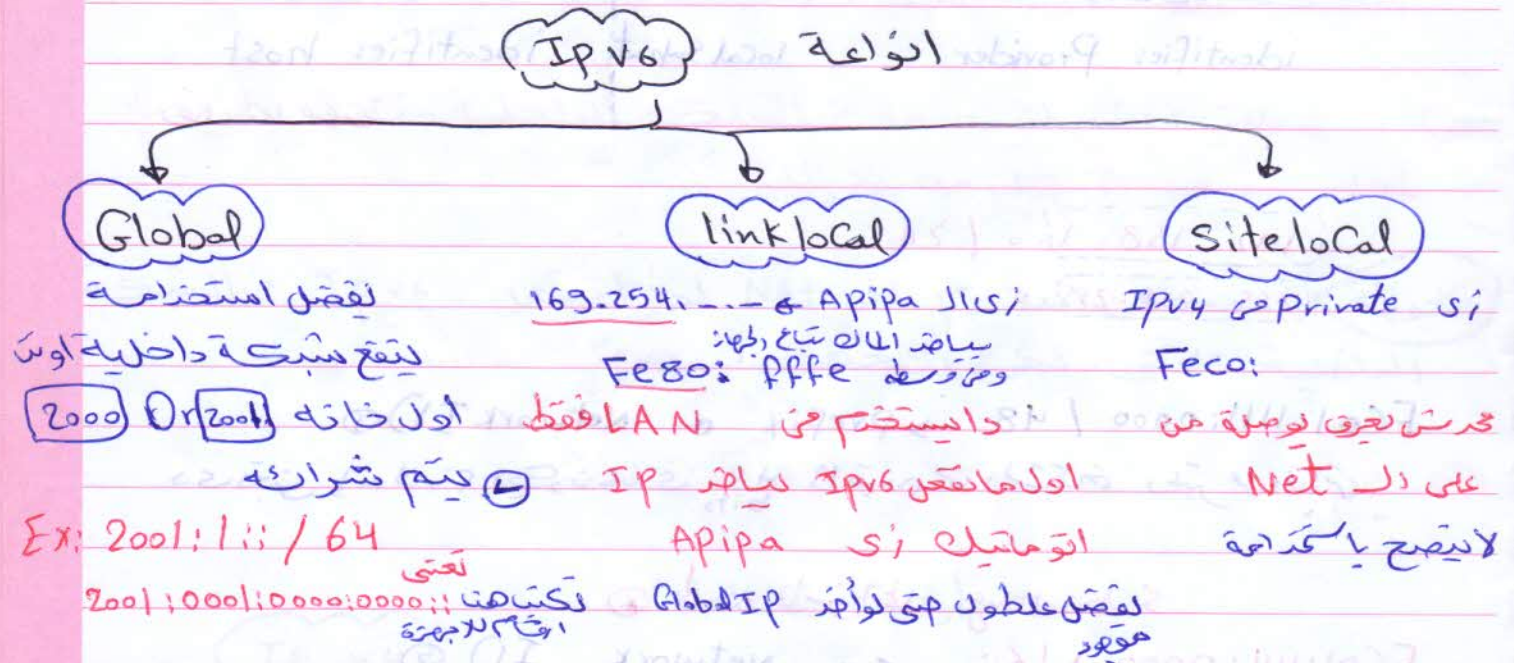 انواعة IPv6
Global
يفضل استخدامة
ينفع شبكة داخلية او نت
اول خانه 2001 Or 2000
يتم شرائه
Ex: 2001:1::/64
تعنى
2001:0001:0000:0000:: تكتب هنا
ارقام للاجهزة
linklocal
زى ال Apipa 169.254. - - -
بياخد الماك بتاع الجهاز
Fe80: fffe وفى وسطه
دا يستخدم فى LAN فقط
اول ما تفعل IPv6 بياخد IP
اتوماتيك زى Apipa
يفضل علطول حتى لو أخد Global IP
موجود
Sitelocal
زى private فى IPv4
Feco:
محدش يعرف يوصلة من
على ال Net
لا ينصح باستخدامة